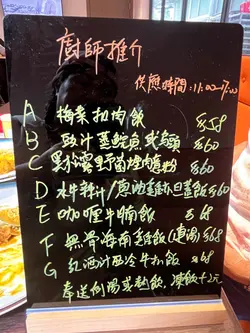 廚師推介
供應時間：11:00-17:00
A 梅菜扣肉飯 $58
B 豉汁蒸鯇魚 $60
C 黑松露野菌燴肉 $60
D 水牛辣汁/ 蒸飯 $60
E 咖喱牛腩飯 $68
F 無骨海南雞飯(連湯) $68
G 紅酒汁西冷牛扒飯 $68
奉送例湯或熱飲，凍飯+2元